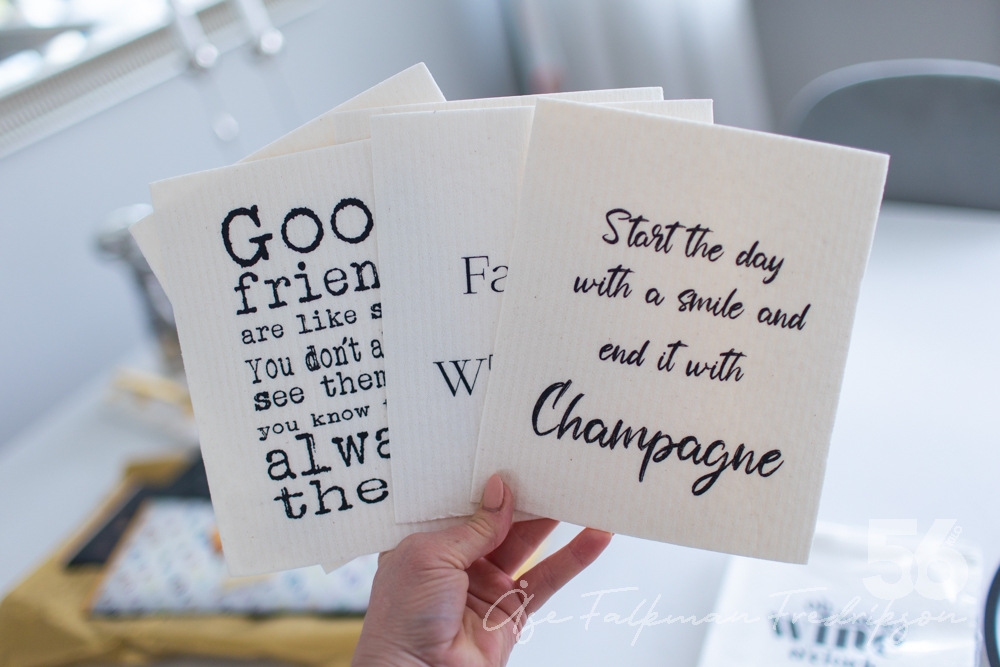 Goo
frien
are like s
You don't a
see them
you know
alwa
the
Fa
W
Start the day
with a smile and
end it with
Champagne
56
Åse Falpman Fredrikson
wine